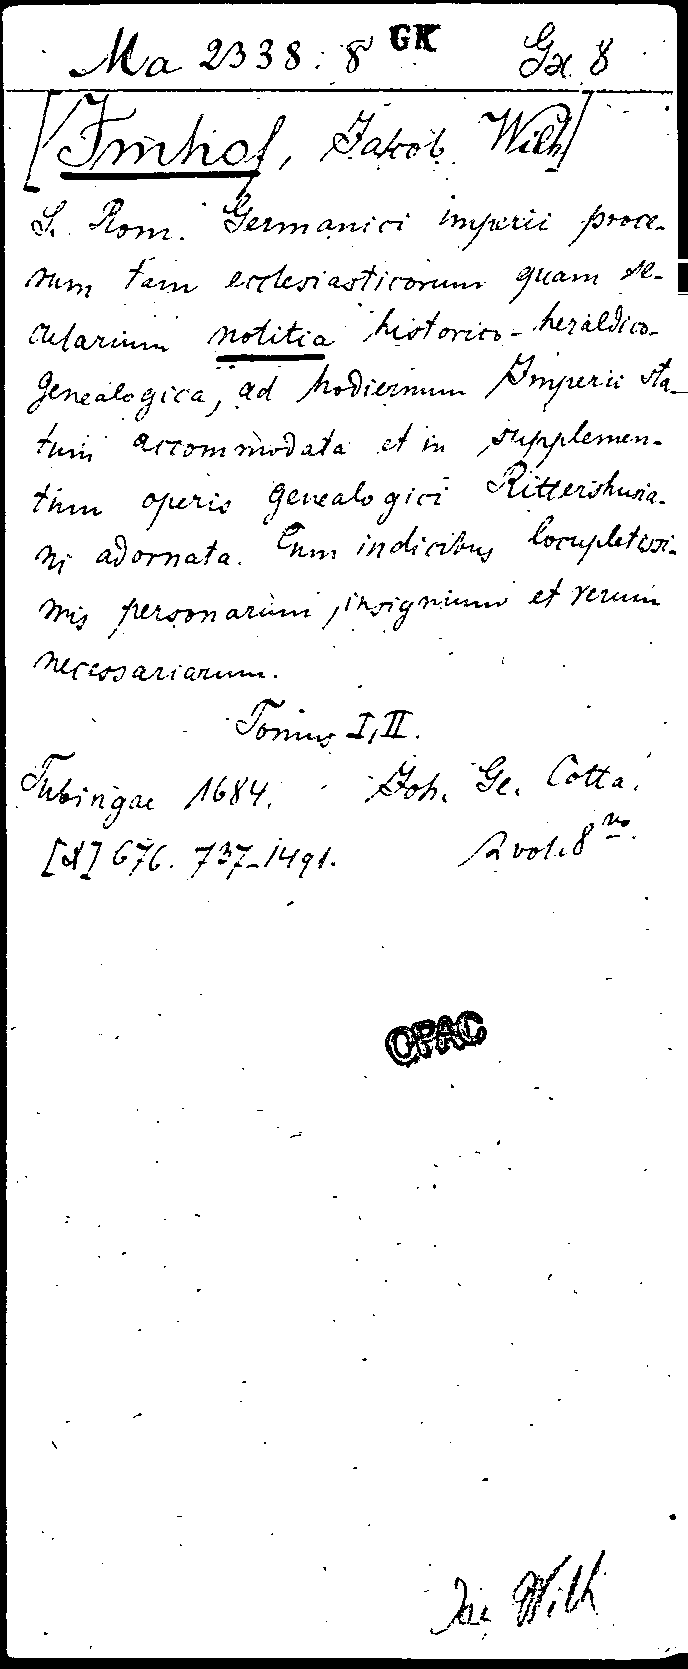 Ma 2338: 8 GK Gx 8
[Imhof, Jakob Wilh]
S. Rom. Germanici imperii proce-
rum tam ecclesiasticorum quam se-
cularium notitia historico-heraldico-
genealogica, ad hodiernum Imperii sta-
tum accommodata et in supplemen-
tum operis genealogici Rittershusia-
ni adornata. Cum indicibus locupletissi-
mis personarum, insignium et rerum
necessariarum.
Tomus I, II.
Tubingae 1684. Joh. Ge. Cotta.
676. 737-1491. 2 vol. 8vo.
OPAC
Wilh